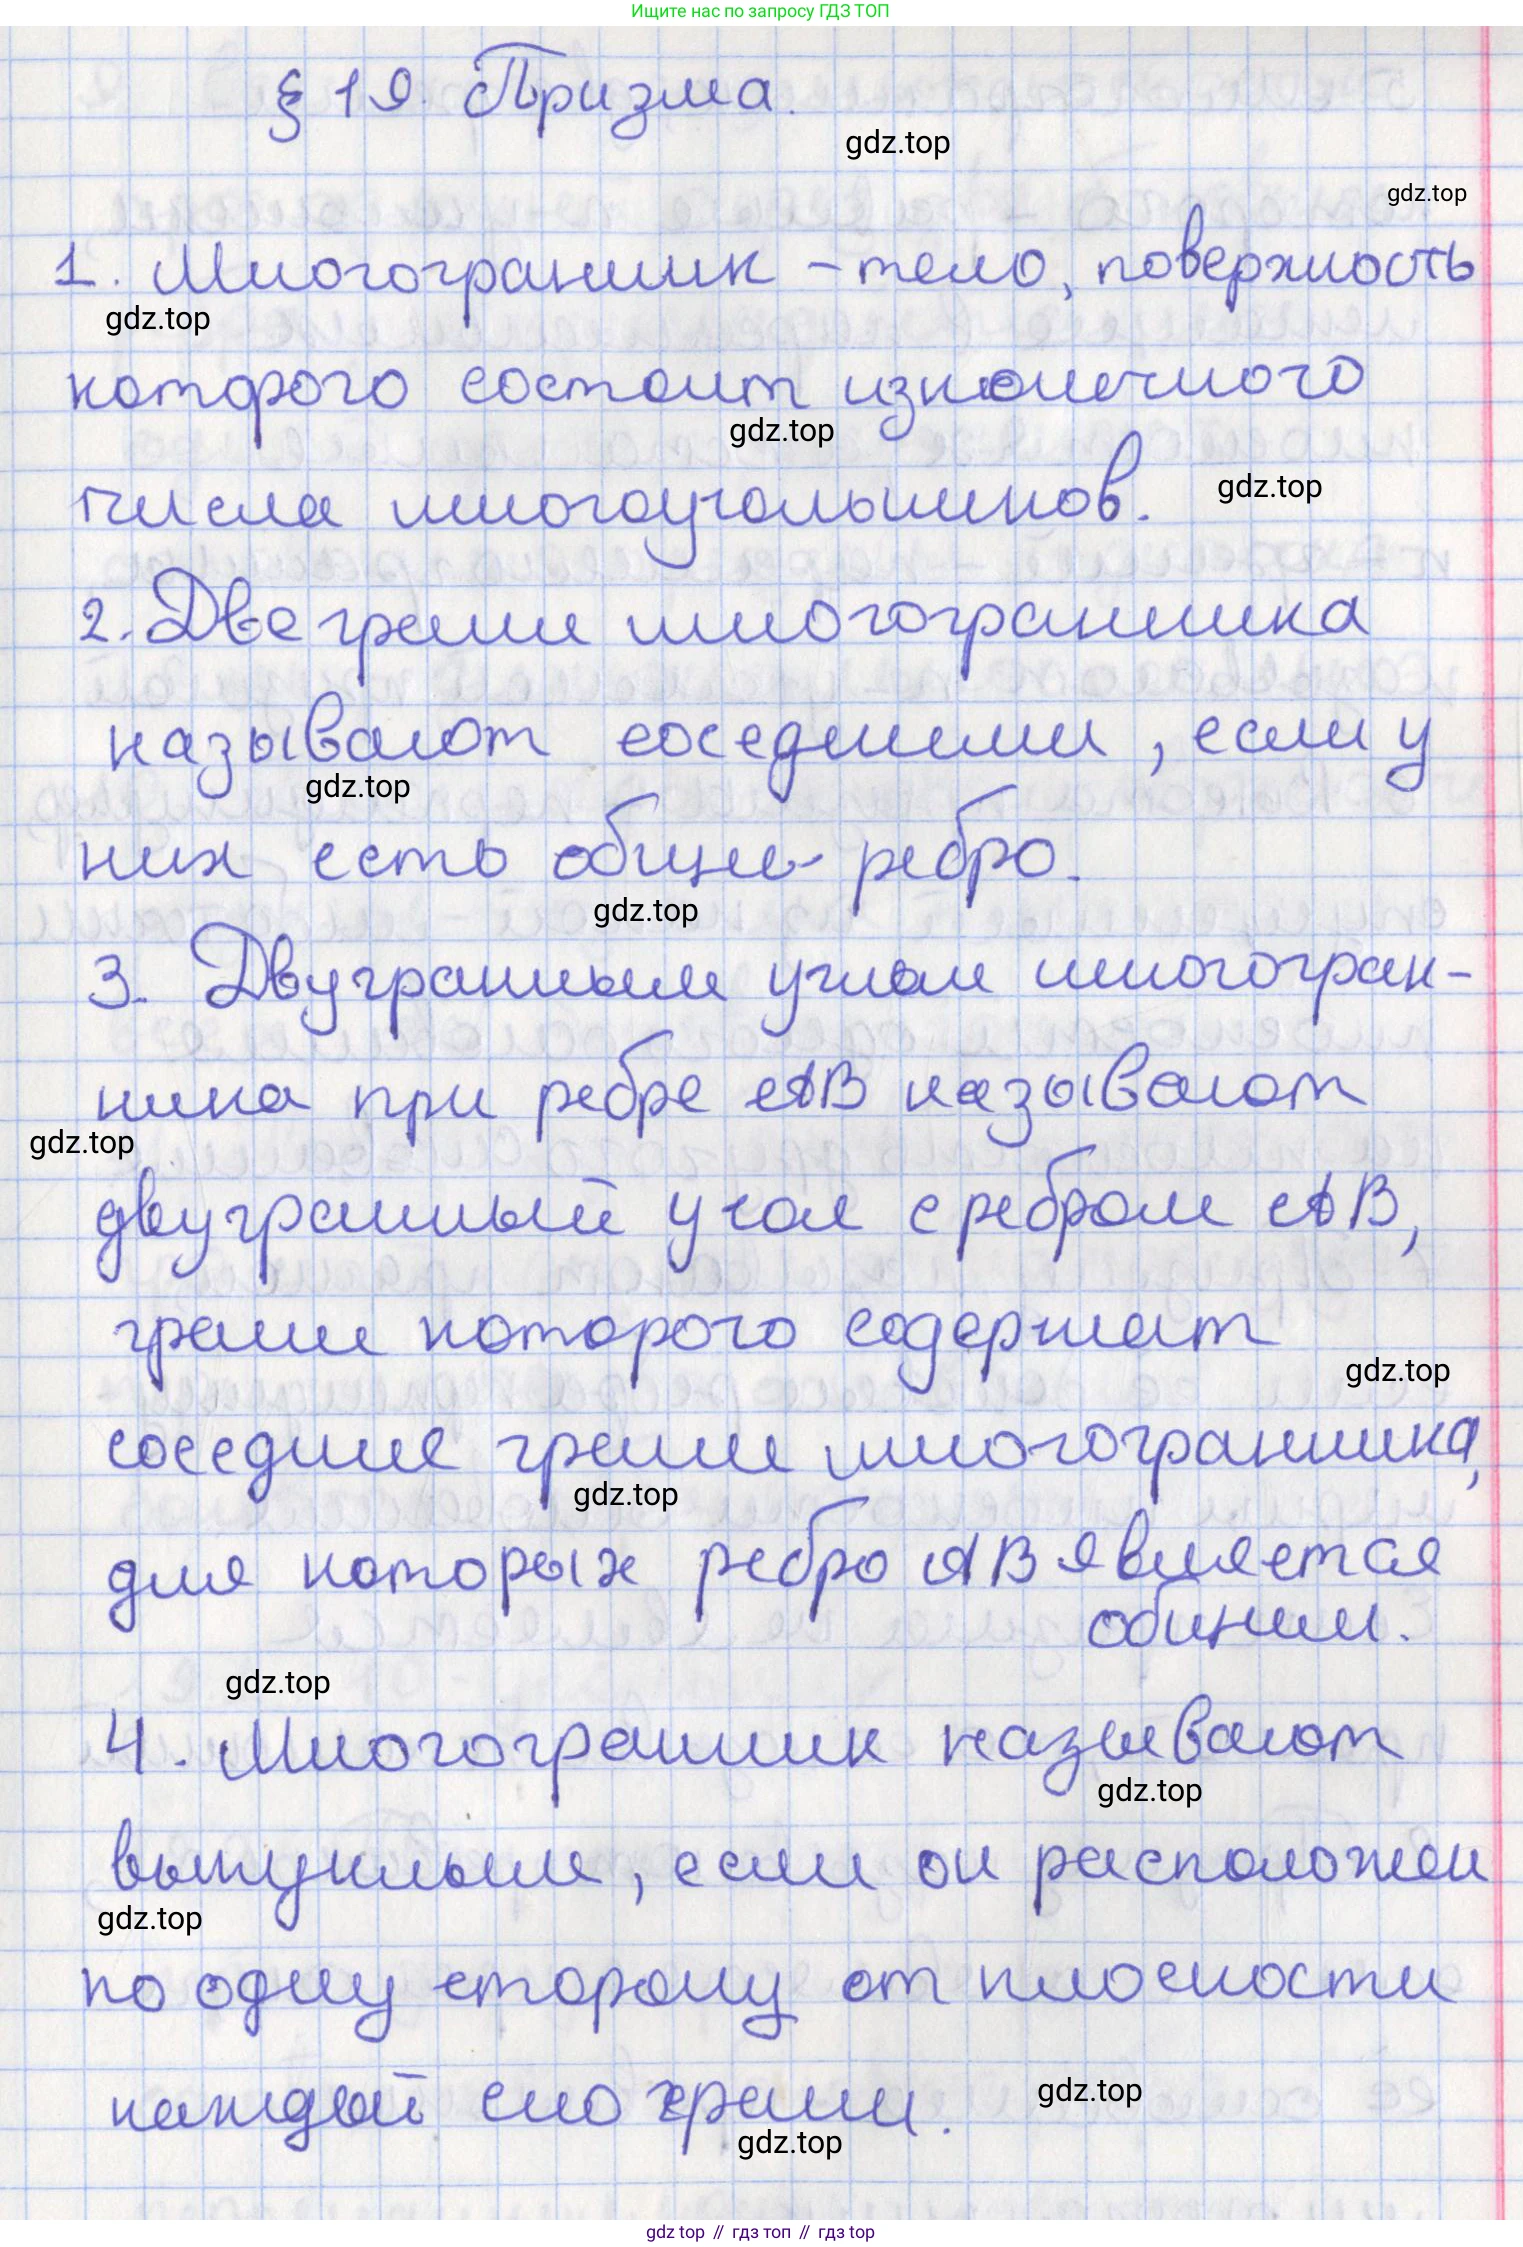 Ищите нас по запросу ГДЗ ТОП
§ 19. Призма.
gdz.top
gdz.top
1. Многогранник – тело, поверхность
gdz.top
которого состоит из конечного
gdz.top
числа многоугольников.
gdz.top
2. Две грани многогранника
называют соседними, если у
gdz.top
них есть общее ребро.
gdz.top
3. Двугранным углом многогран-
ника при ребре AB называют
gdz.top
двугранный угол с ребром AB,
грани которого содержат
gdz.top
соседние грани многогранника,
gdz.top
для которых ребро AB является
общим.
gdz.top
4. Многогранник называют
gdz.top
выпуклым, если он расположен
gdz.top
по одну сторону от плоскости
каждой его грани.
gdz.top
gdz.top
gdz top // гдз топ // гдз top